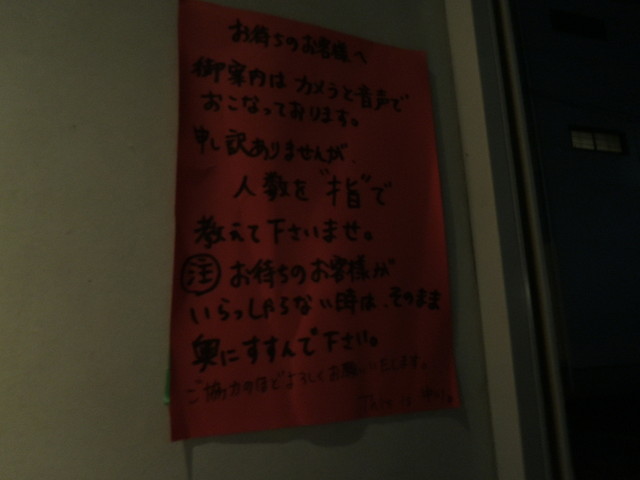 お待ちのお客様へ
御案内はカメラと音声で
おこなっております。
申し訳ありませんが、
人数を"指"で
教えて下さいませ。
注 お待ちのお客様が
いらっしゃらない時は、そのまま
奥にすすんで下さい。
ご協力のほどよろしくお願いいたします。